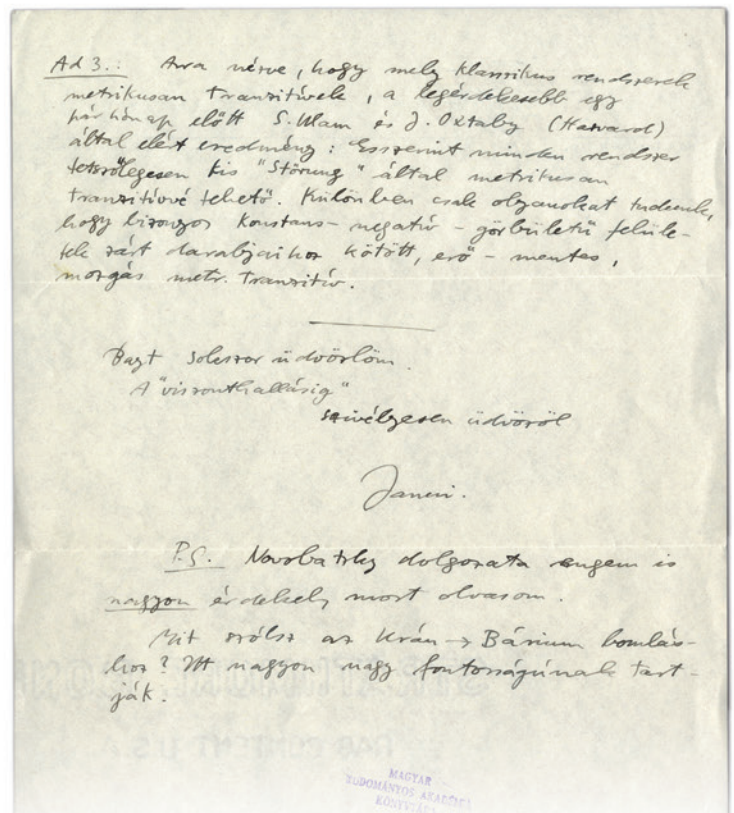 Ad 3.: Arra nézve, hogy mely klasszikus rendszerek
metrikusan tranzitívek, a legérdekesebb egy
pár hónap előtt S. Ulam és J. Oxtoby (Harvard)
által elért eredmény: Eszerint minden rendszer
tetszőlegesen kis "Störung" által metrikusan
tranzitívvé tehető. Különben csak olyanokat tudunk,
hogy bizonyos konstans-negatív-görbületű felüle-
tek zárt darabjaihoz kötött, erő-mentes,
mozgás metr. tranzitív.
Bazt sokszor üdvözlöm.
A "viszonthallásig"
szívélyesen üdvözöl
Jancsi.
P.S. Novobatzky dolgozata engem is
nagyon érdekel, most olvasom.
Mit szólsz az Urán → Bárium bomlás-
hoz? Itt nagyon nagy fontosságúnak tart-
ják.
MAGYAR
TUDOMÁNYOS AKADÉMIA
KÖNYVTÁRA